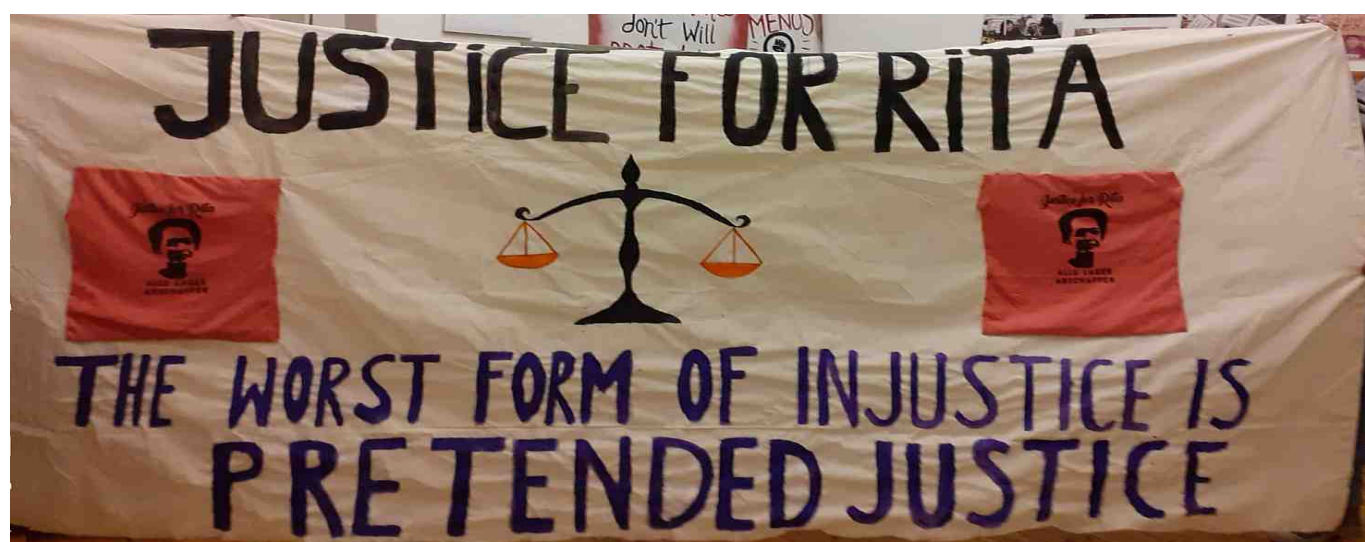 don't Will
MENUS
JUSTiCE FOR RiTA
Justice for Rita
ALLE LAGER
ABSCHAFFEN
Justice for Rita
ALLE LAGER
ABSCHAFFEN
THE WORST FORM OF INJUSTICE IS
PRETENDED JUSTICE